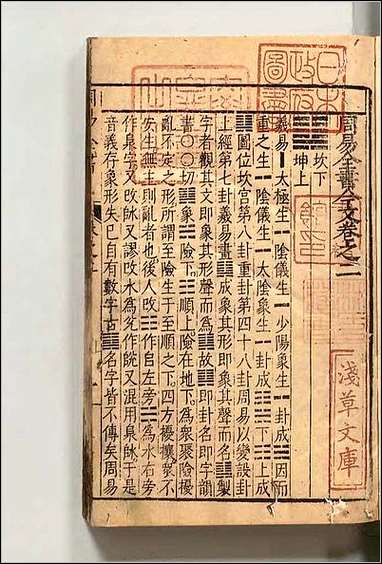 周易全書今文卷之二
坎下
坤上
羲易━太極生╍陰儀生⚍少陽象生☵卦成䷆因而
重之生╍陰儀生⚏太陰象生☷卦成☵下☷上成
䷆圖位坎宮第八卦重卦第四十八卦周易以變設卦
上經第七卦羲易畫䷆成象其形即象其聲而名䷆製
字者觀其文即象其形聲而爲䷆故䷆即卦名即字韻
書〇〇切䷆☵順上險在地下爲衆聚險擾
亂不定之形所謂至險生于至順之下四方擾攘衆不
安生無主則亂者也後人改☵作自左旁☷爲水右旁
作㠯字又改眿又謬改水爲㐬作皖又混用㠯眿于是
音義存象形失巳自有數字古䷆名字皆不傳矣周易
日本
政府
圖書
淺草文庫